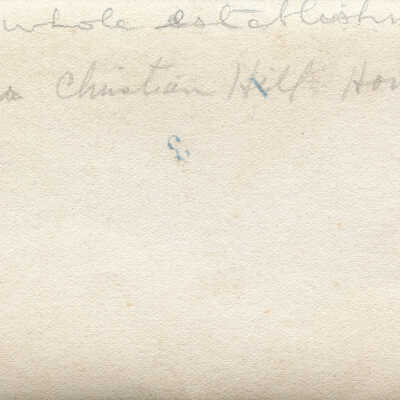 whole establishm
Christian Hill Hom